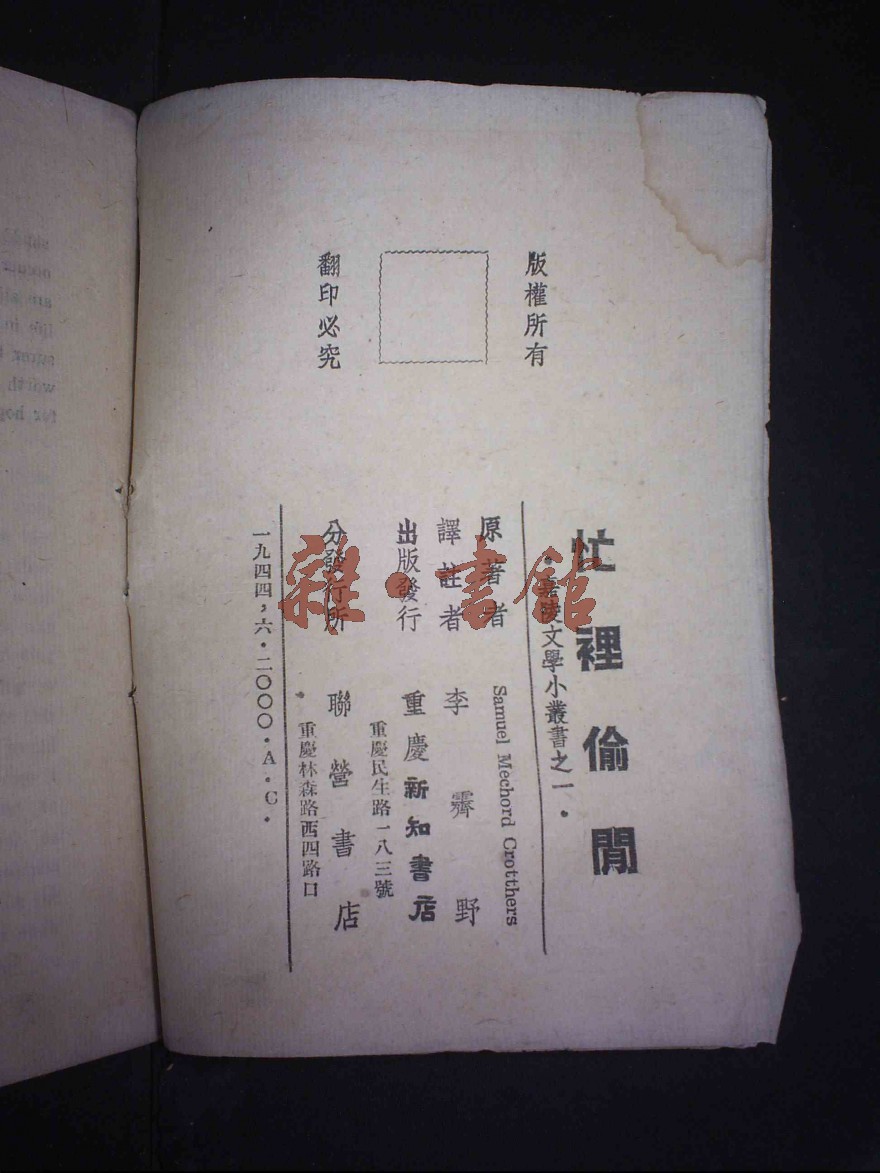 版權所有
翻印必究
忙裡偷閒
·嘉陵文學小叢書之一·
原著者 Samuel Mechord Crotthers
譯註者 李霽野
出版發行 重慶新知書店
重慶民生路一八三號
分發行所 聯營書店
·重慶林森路西四路口
一九四四,六·二〇〇〇·A·C·
雜·書館